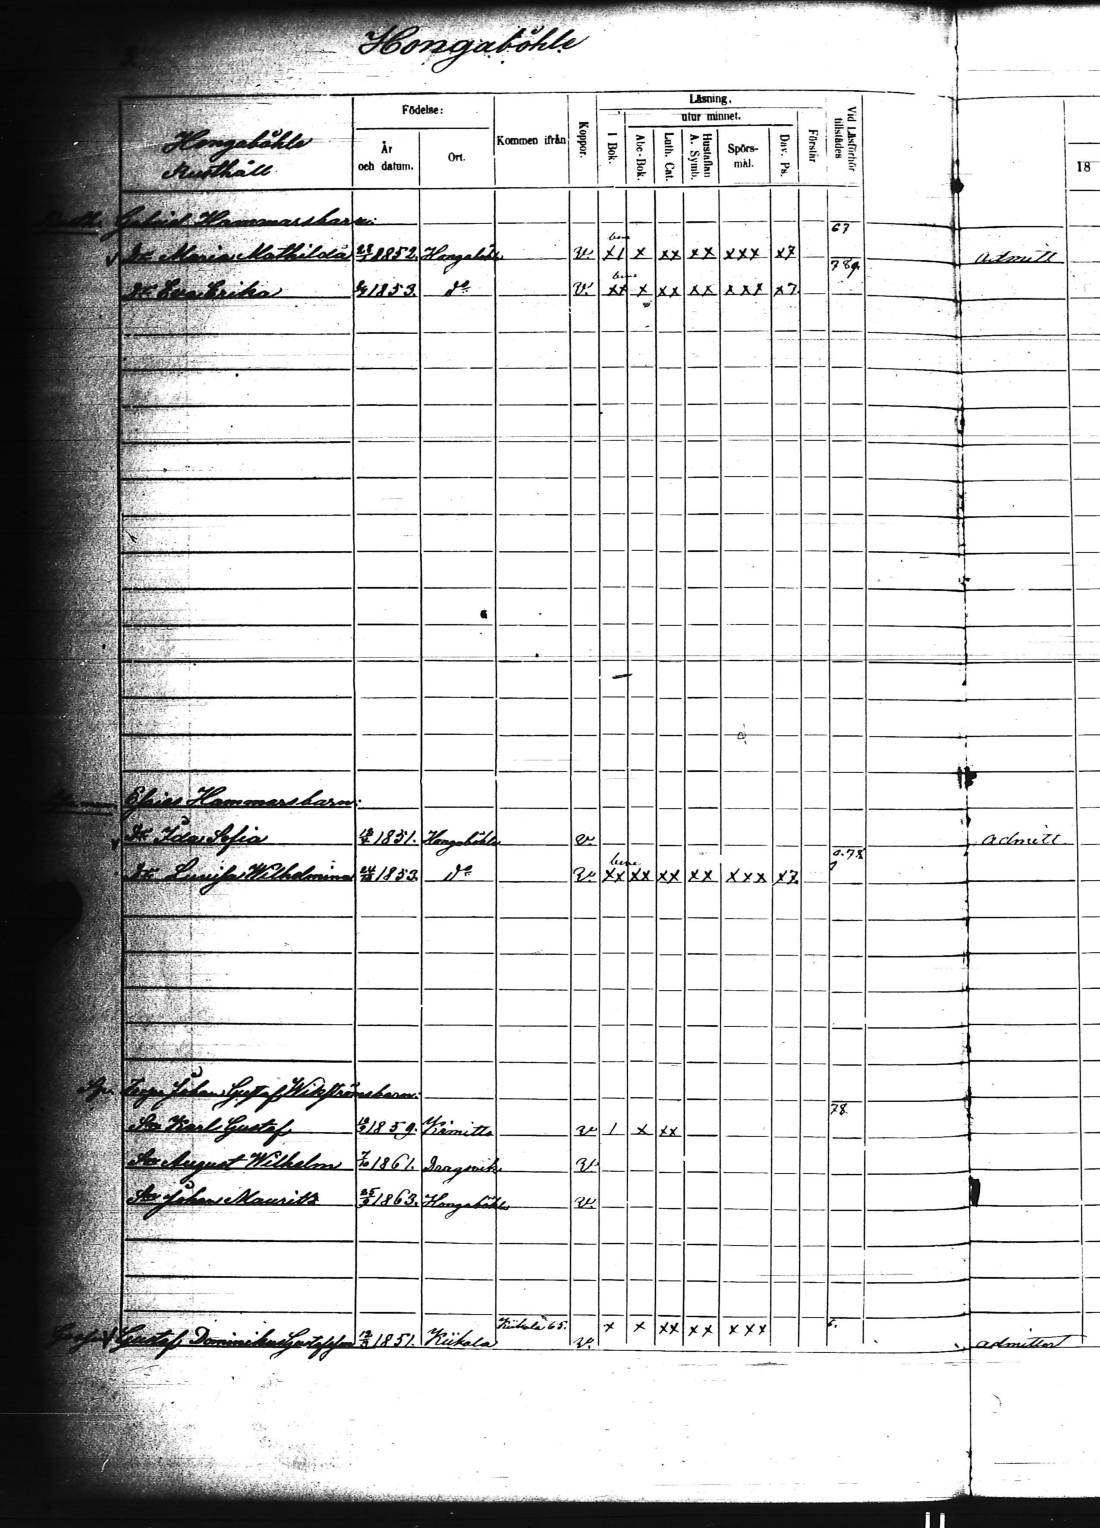 Hongaböhle
Hongaböhle Rusthåll
Födelse:
År och datum.
Ort.
Kommen ifrån
Koppor.
Läsning.
utur minnet.
I Bok.
Abc-Bok.
Luth. Cat.
Hustaflan A. Symb.
Spörs-mål.
Dav. Ps.
Förstår
Vid Läsförhör tillstädes
18
Gabriel Hammarsbarn: 67
Dr Maria Mathilda 1852. Hongaböhle v. x1 x xx xx xxx x7 789. admitt
Dr Eva Erika 1853. do v. bene xx x xx xx xxx x7.
Elias Hammarsbarn:
Dr Ida Sofia 1851. Hongaböhle v. admitt
Dr Lovisa Wilhelmina 24/12 1853. do v. bene xx xx xx xx xxx x7
Johan Gustaf Wikströmsbarn: 78
Son Karl Gustaf 1859. Kimitto v 1 x xx
Son August Wilhelm 1861. Dragsvik v.
Son Johan Mauritz 1863. Hongaböhle v.
Gustaf Dominikus Gustafsson 1851. Kiikala Kiikala 65. v. x x xx xx xxx admitter